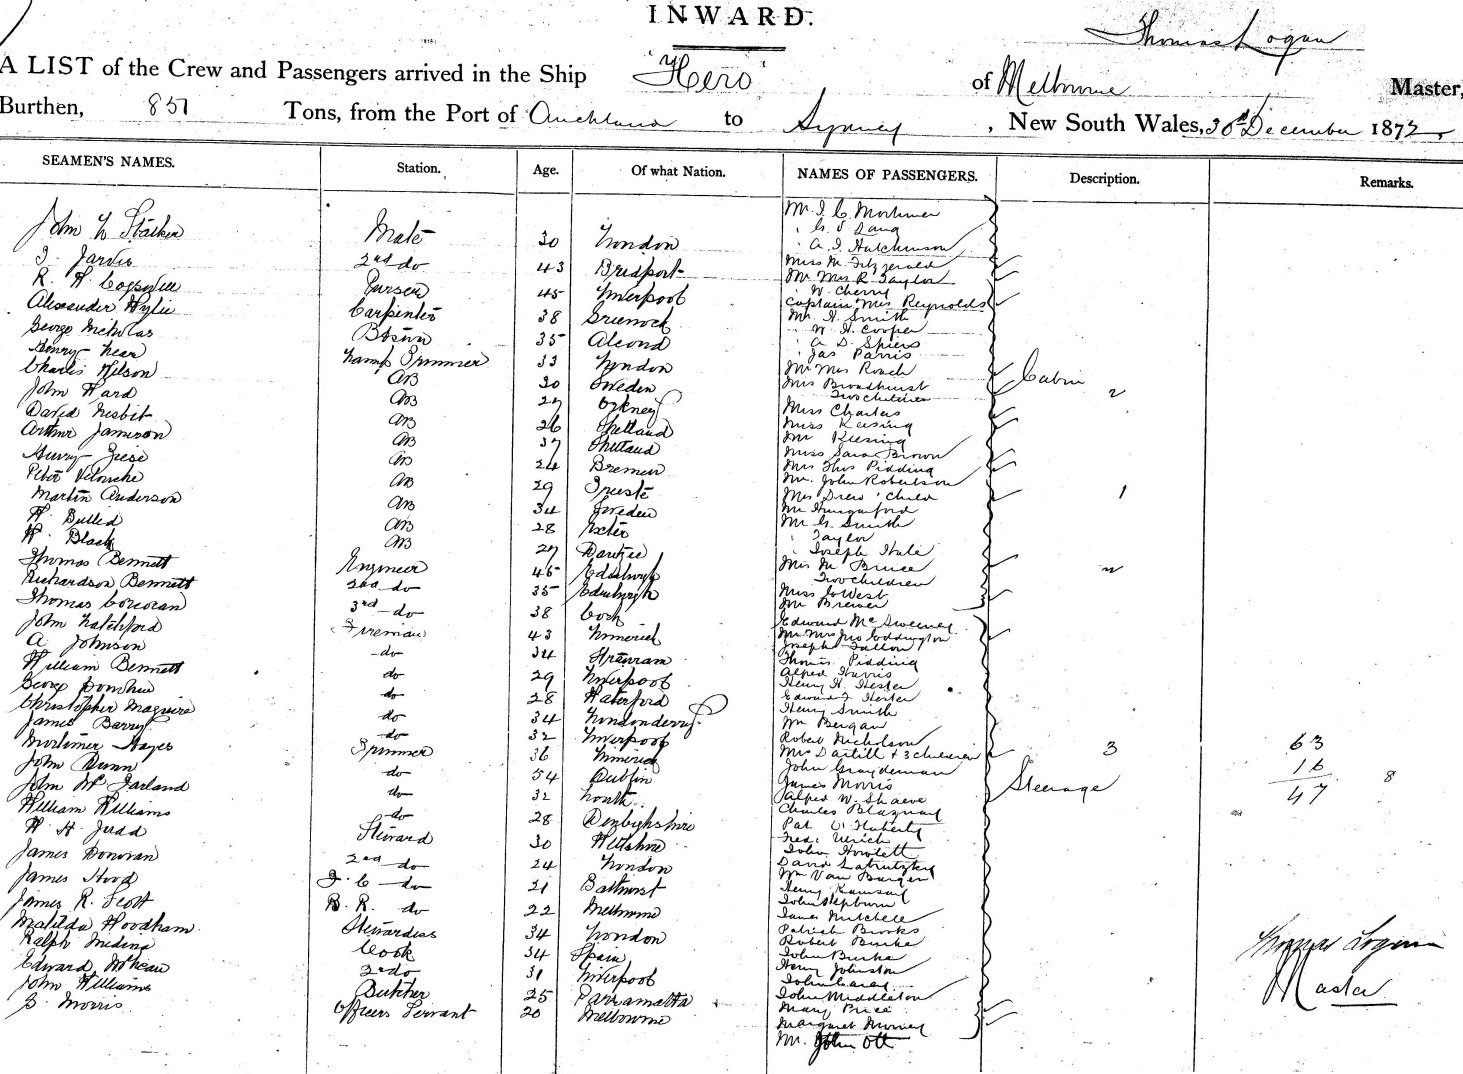 INWARD.
Thomas Logan
A LIST of the Crew and Passengers arrived in the Ship "Hero" of Melbourne Master,
Burthen, 851 Tons, from the Port of Auckland to Sydney, New South Wales, 30th December 1872
SEAMEN'S NAMES. Station. Age. Of what Nation. NAMES OF PASSENGERS. Description. Remarks.
John Stalker Mate 30 London
Jarvis 2nd do 43 Bridport
R. H. Purser 45 Liverpool
Alexander Wylie Carpenter 38 Greenock
George Nicholas Bosun 35
Henry Near Lamp Trimmer 33 London
Charles Wilson AB 30 Sweden
John Ward AB 27 Orkney
David Nesbit AB 26 Shetland
Arthur Jamieson AB 37 Shetland
AB 24 Bremen
Peter AB 29 Trieste
Martin Anderson AB 34 Sweden
W. Bullid AB 28 Exeter
W. Black AB 27 Dundee
Thomas Bennett Engineer 45 Edinburgh
Richardson Bennett 2nd do 35 Edinburgh
Thomas Corcoran 3rd do 38 Cork
John Fireman 43 Limerick
A Johnson do 34
William Bennett do 29 Liverpool
George Donohue do 28 Waterford
Christopher Maguire do 34 Londonderry
James Barry do 32 Liverpool
Mortimer Hayes Trimmer 36 Limerick
John Dunn do 54 Dublin
John McFarland do 32 Louth
William Williams do 28 Denbighshire
W. H. Judd Steward 30 Wiltshire
James Donovan 2nd do 24 London
James Hood do 21 Bathurst
James R. Scott B. R. do 22 Melbourne
Matilda Woodham Stewardess 34 London
Ralph Medina Cook 34 Spain
Edward 2 do 31 Liverpool
John Williams Butcher 25 Parramatta
S. Morris Officers Servant 20 Melbourne
Mr. I. C. Mortimer
" G. S
" A. I. Hutchinson
Miss M. Fitzgerald
Mr Mrs R Taylor
" W. Cherry
Captain Mrs Reynolds
Mr. H. Smith
" W. H. Cooper
" A D. Spiers
" Jas Parris
Mr Mrs Roach
Mrs Broadhurst
Two children 2
Miss Charters
Miss Keesing
Mr Keesing
Miss Sara Brown
Mrs Thos Pidding
Mr. John Robertson
Mrs Drew & Child 1
Mr Hungerford
Mr G. Smith
" Taylor
" Joseph Hale
Mrs M. Bruce
Two children 2
Miss G West
Mr Brewer
Cabin
Edward McSweeney
Mr Mrs Jno Coddington
Joseph Fallon
Thomas Pidding
Alfred Harris
Henry H. Hester
Edward J. Hester
Henry Smith
Wm Bergan
Robert Nicholson
Mrs Dartill & 3 children 3
John Graydeman
James Morris
Alfred W. Shaeve
Charles
Pat O'Flaherty
Fred. Ulrich
John Howlett
David
Wm Van Burgen
Henry Ramsay
John Hepburn
James Mitchell
Patrick Brooks
Robert Burke
John Burke
Henry Johnston
John Carey
John Middleton
Mary Price
Margaret Morrisey
Mr. John Ott
Steerage
63
16 8
47
Thomas Logan
Master